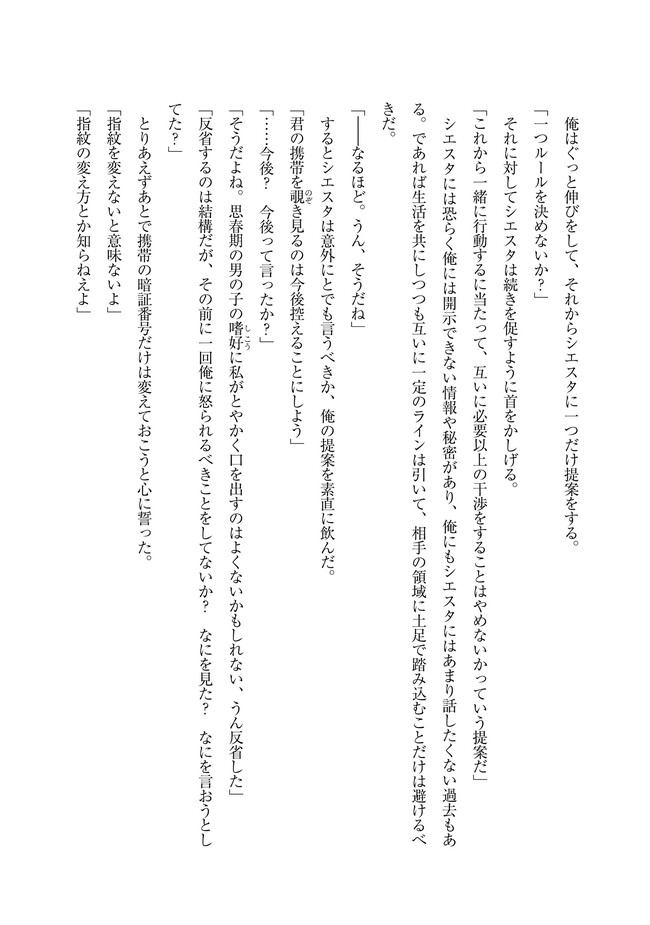 俺はぐっと伸びをして、それからシエスタに一つだけ提案をする。
「一つルールを決めないか？」
それに対してシエスタは続きを促すように首をかしげる。
「これから一緒に行動するに当たって、互いに必要以上の干渉をすることはやめないかっていう提案だ」
シエスタには恐らく俺には開示できない情報や秘密があり、俺にもシエスタにはあまり話したくない過去もあ
る。であれば生活を共にしつつも互いに一定のラインは引いて、相手の領域に土足で踏み込むことだけは避けるべ
きだ。
「――なるほど。うん、そうだね」
するとシエスタは意外にとでも言うべきか、俺の提案を素直に飲んだ。
「君の携帯を覗のぞき見るのは今後控えることにしよう」
「……今後？　今後って言ったか？」
「そうだよね。思春期の男の子の嗜好しこうに私がとやかく口を出すのはよくないかもしれない、うん反省した」
「反省するのは結構だが、その前に一回俺に怒られるべきことをしてないか？　なにを見た？　なにを言おうとし
てた？」
とりあえずあとで携帯の暗証番号だけは変えておこうと心に誓った。
「指紋を変えないと意味ないよ」
「指紋の変え方とか知らねえよ」